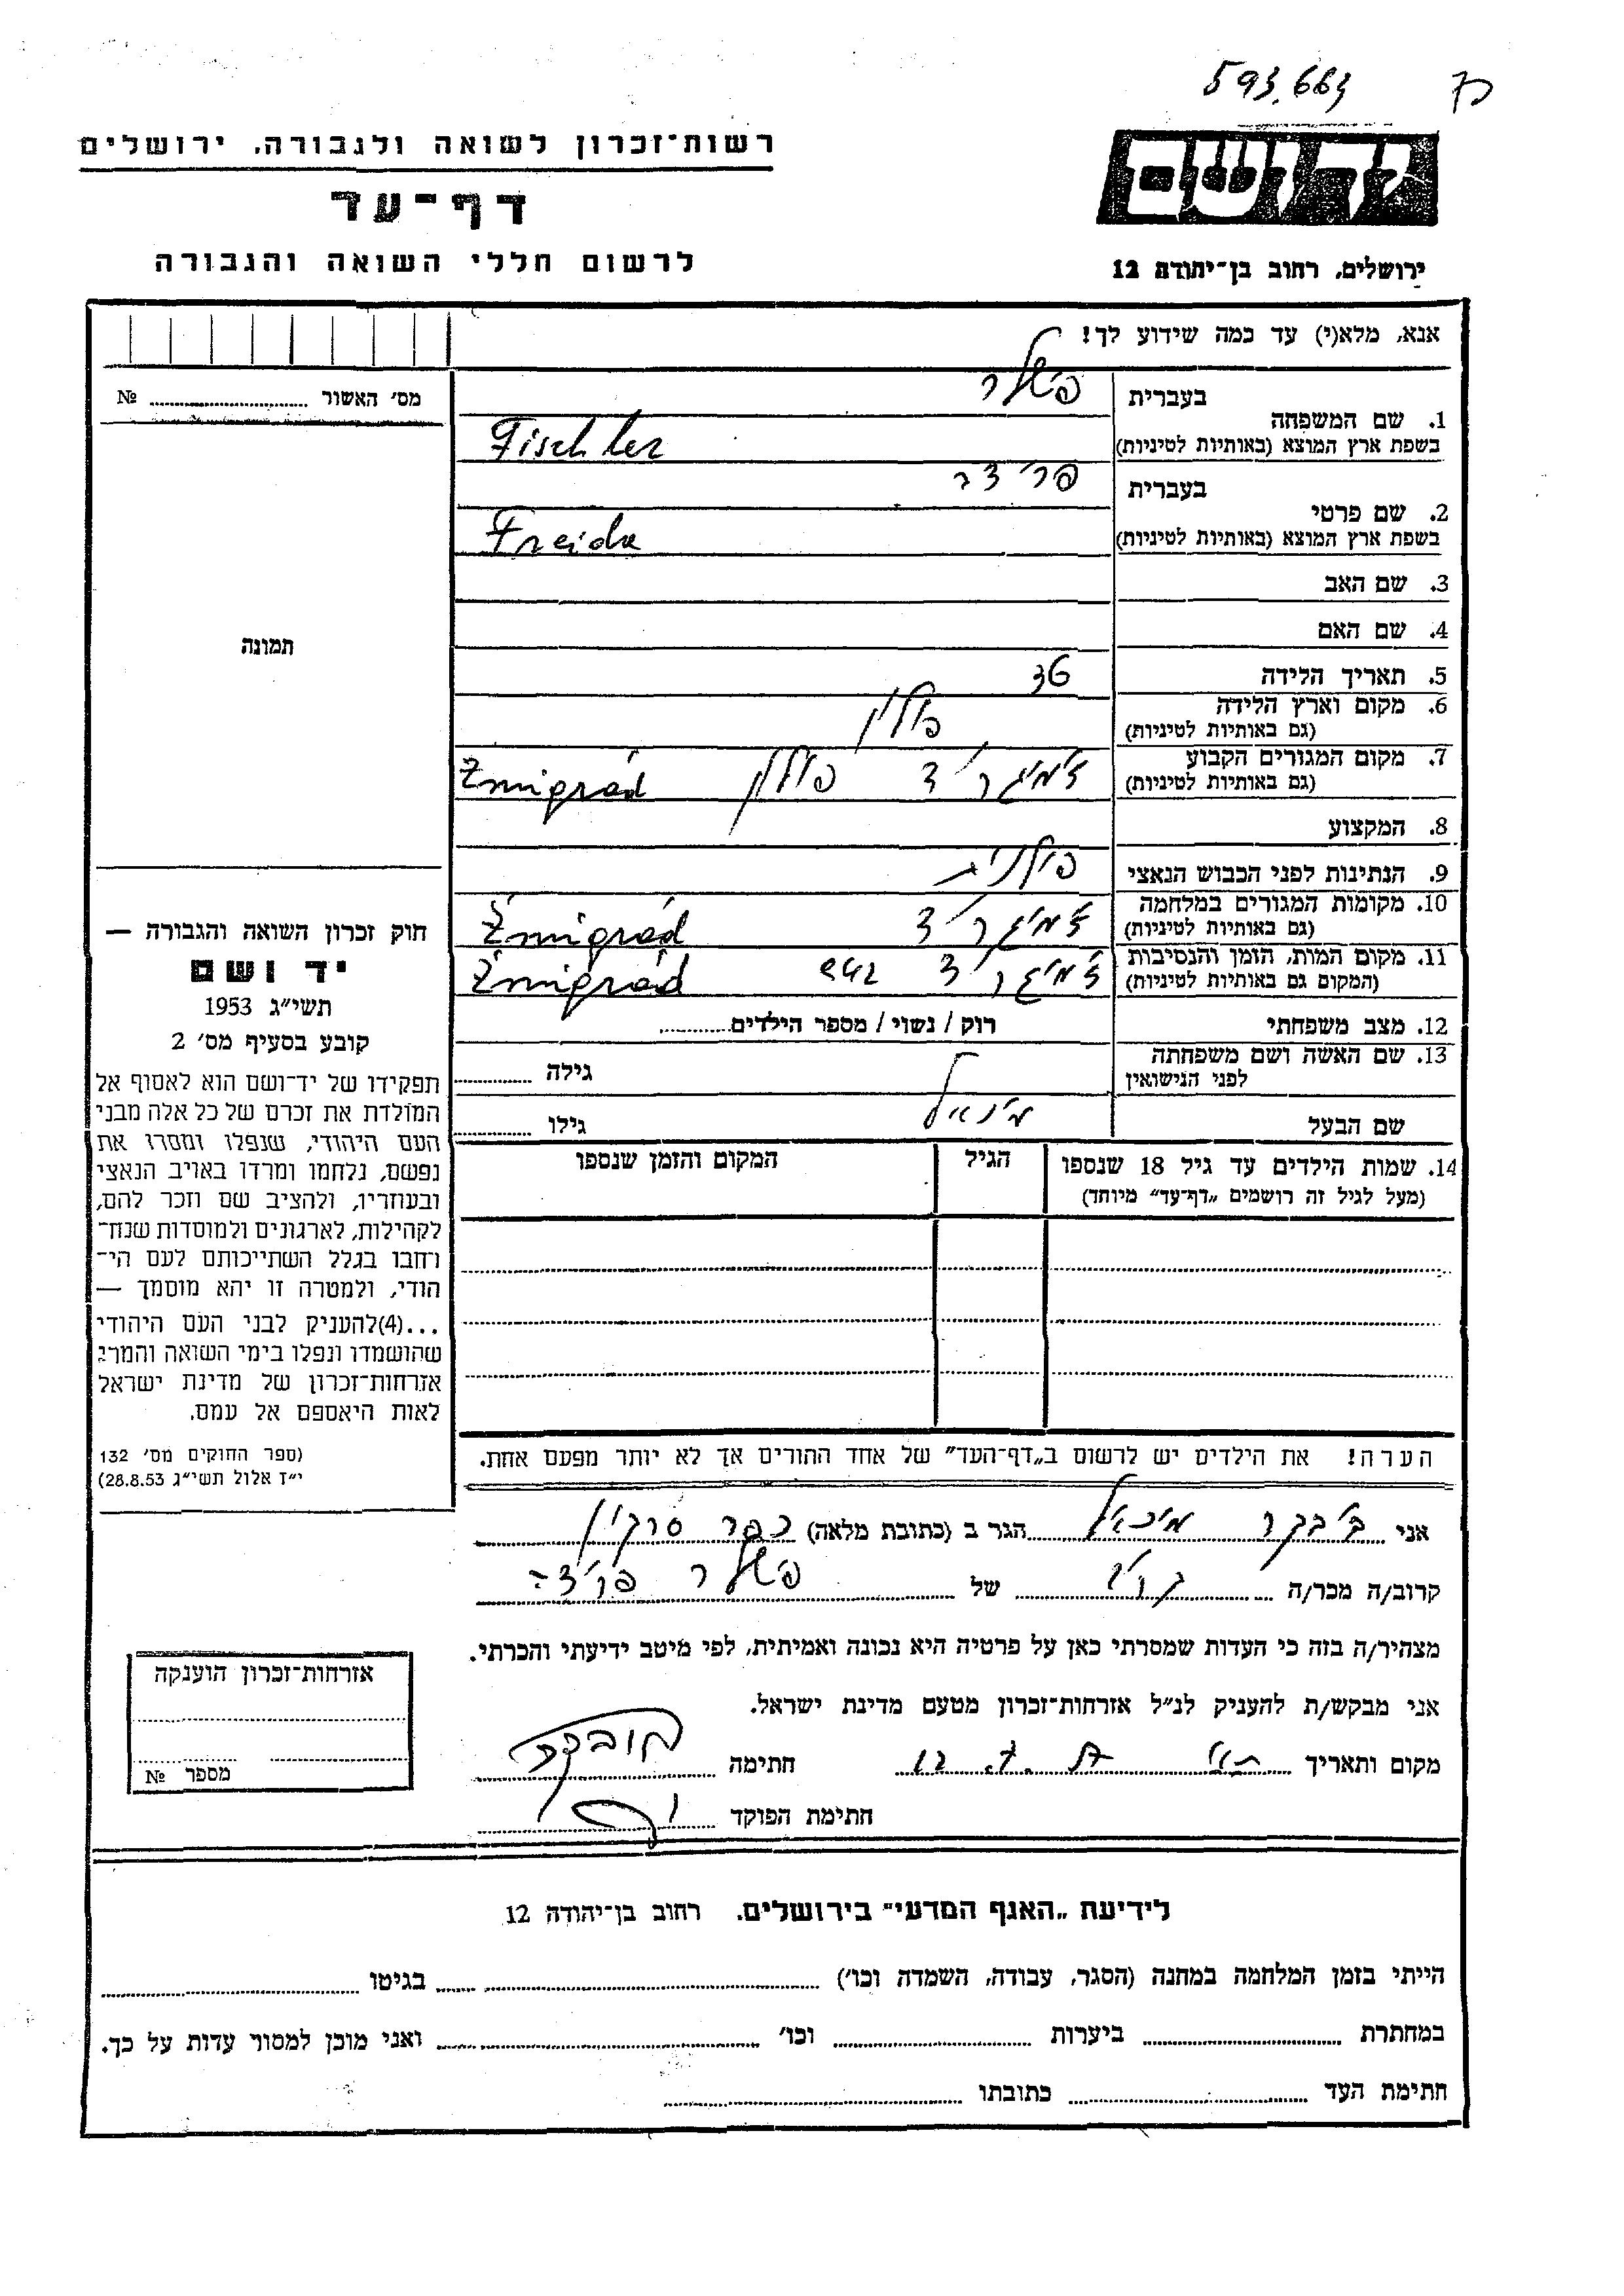 593.663
רשות־זכרון לשואה ולגבורה. ירושלים
דף־עד
לרשום חללי השואה והגבורה
יד ושם
ירושלים, רחוב בן־יהודה 12
אנא, מלא(י) עד כמה שידוע לך!
מס׳ האשור № 
בעברית פישלר
1. שם המשפחה
בשפת ארץ המוצא (באותיות לטיניות) Fischler
בעברית
2. שם פרטי
בשפת ארץ המוצא (באותיות לטיניות) Freida
3. שם האב
4. שם האם
תמונה
5. תאריך הלידה 36
6. מקום וארץ הלידה פולין
(גם באותיות לטיניות)
7. מקום המגורים הקבוע ז'מיגר'ד פולין Żmigród
(גם באותיות לטיניות)
8. המקצוע
9. הנתינות לפני הכבוש הנאצי פולנית
10. מקומות המגורים במלחמה ז'מיגר'ד Żmigród
(גם באותיות לטיניות)
11. מקום המות, הזמן והנסיבות ז'מיגר'ד 942 Żmigród
(המקום גם באותיות לטיניות)
12. מצב משפחתי רוק / נשוי / מספר הילדים
13. שם האשה ושם משפחתה גילה
לפני הנישואין
שם הבעל גילו
14. שמות הילדים עד גיל 18 שנספו הגיל המקום והזמן שנספו
(מעל לגיל זה רושמים „דף־עד״ מיוחד)
חוק זכרון השואה והגבורה —
יד ושם
תשי״ג 1953
קובע בסעיף מס׳ 2
תפקידו של יד־ושם הוא לאסוף אל
המולדת את זכרם של כל אלה מבני
העם היהודי, שנפלו ומסרו את
נפשם, נלחמו ומרדו באויב הנאצי
ובעוזריו, ולהציב שם וזכר להם,
לקהילות, לארגונים ולמוסדות שנח־
רחבו בגלל השתייכותם לעם הי־
הודי, ולמטרה זו יהא מוסמך —
...(4)להעניק לבני העם היהודי
שהושמדו ונפלו בימי השואה והמרי
אזרחות־זכרון של מדינת ישראל
לאות היאספם אל עמם.
(ספר החוקים מס׳ 132
י״ז אלול תשי״ג 28.8.53)
הערה! את הילדים יש לרשום ב„דף־העד״ של אחד ההורים אך לא יותר מפעם אחת.
אני מיכאל הגר ב (כתובת מלאה) כפר סרקין
קרוב/ה מכר/ה של פישלר
מצהיר/ה בזה כי העדות שמסרתי כאן על פרטיה היא נכונה ואמיתית, לפי מיטב ידיעתי והכרתי.
אני מבקש/ת להעניק לנ״ל אזרחות־זכרון מטעם מדינת ישראל.
מקום ותאריך חתימה
חתימת הפוקד
אזרחות־זכרון הוענקה
מספר №
לידיעת „האגף המדעי״ בירושלים. רחוב בן־יהודה 12
הייתי בזמן המלחמה במחנה (הסגר, עבודה, השמדה וכו׳) בגיטו
במחתרת ביערות וכו׳ ואני מוכן למסור עדות על כך.
חתימת העד כתובתו